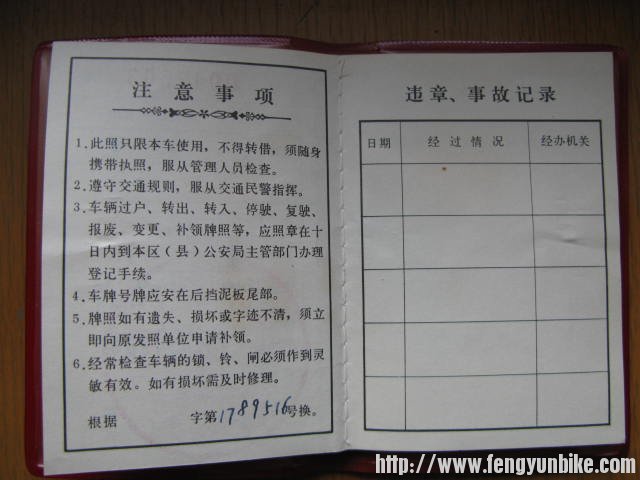 注意事项
1. 此照只限本车使用，不得转借，须随身
携带执照，服从管理人员检查。
2. 遵守交通规则，服从交通民警指挥。
3. 车辆过户、转出、转入、停驶、复驶、
报废、变更、补领牌照等，应照章在十
日内到本区（县）公安局主管部门办理
登记手续。
4. 车牌号牌应安在后挡泥板尾部。
5. 牌照如有遗失、损坏或字迹不清，须立
即向原发照单位申请补领。
6. 经常检查车辆的锁、铃、闸必须作到灵
敏有效。如有损坏需及时修理。
根据 字第1789516号换。
违章、事故记录
日期 经过情况 经办机关
http://www.fengyunbike.com